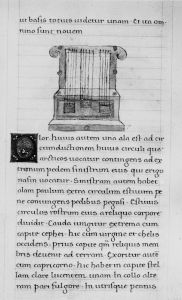 ut basis totius uidetur unam. Et ita om
nino sunt nouem
Olor. huius autem una ala est ad cir
cum ductionem huius circuli qui
arcticos uocatur contingens ad ex
tremum pedem sinistrum eius qui ergo
nasin uocatur. Sinistram autem habet
alam paulum extra circulum estiuum pe
ne coniungens pedibus pegasi. Estiuus
circulus rostrum eius a reliquo corpore
diuidit. Cauda iungitur extrema cum
capite cephei. hic cum uirgine et chelis
occidens. prius capite quam reliquis mem
bris deuenit ad terram. Exoritur autem
cum capricorno. hic habet in capite stel
lam clare lucentem unam. In collo alte
ram pari fulgore. In utrisque pennis